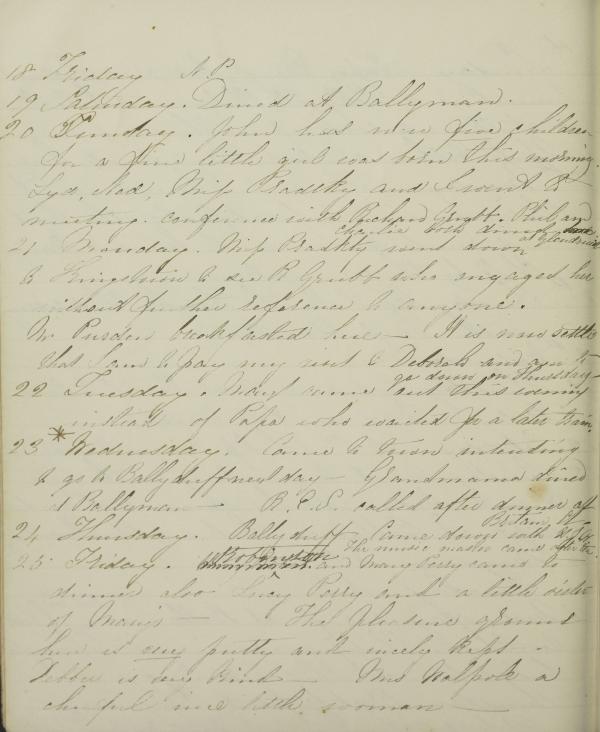 18 Friday N.P.
19 Saturday. Dined at Ballyman.
20 Sunday. John has now five children
for a fine little girl was born this morning.
Lyd, Ned, Miss Pradsky and I went to
meeting. conference with Richard Grubb. Phil and
Charlie both dined
21 Munday. Miss Pradsky went down
to Kingstown to see R Grubb who engaged her
without further reference to anyone.
Mr Purdon breakfasted here — It is now settled
that I am to pay my visit to Deborah and am to
go down on Thursday —
22 Tuesday. Mary came out this evening
instead of Papa who waited for a later train.
23 * Wednesday. Came to Town intending
to go to Ballyduff next day — Grandmama dined
at Ballyman — R.C.S. called after dinner
24 Thursday. Ballyduff Came down with
The music master came
25 Friday. and Mary came to
dinner also Lucy Perry and a little sister
of Mary's — The pleasure ground
here is very pretty and nicely kept.
Debba is very kind — Mrs Walpole a
cheerful nice little woman —